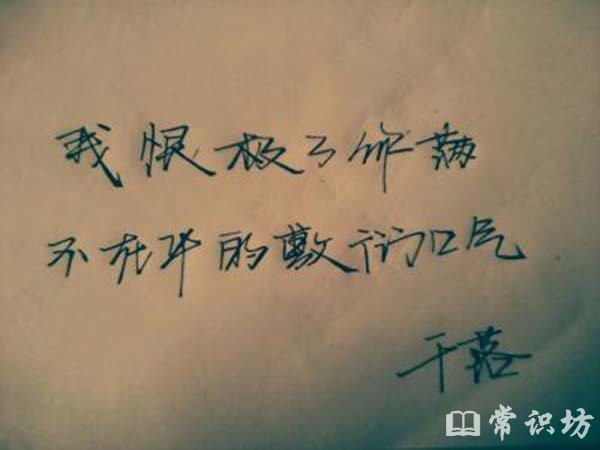 我恨极了你满
不在乎的敷衍口气
千落
常识坊